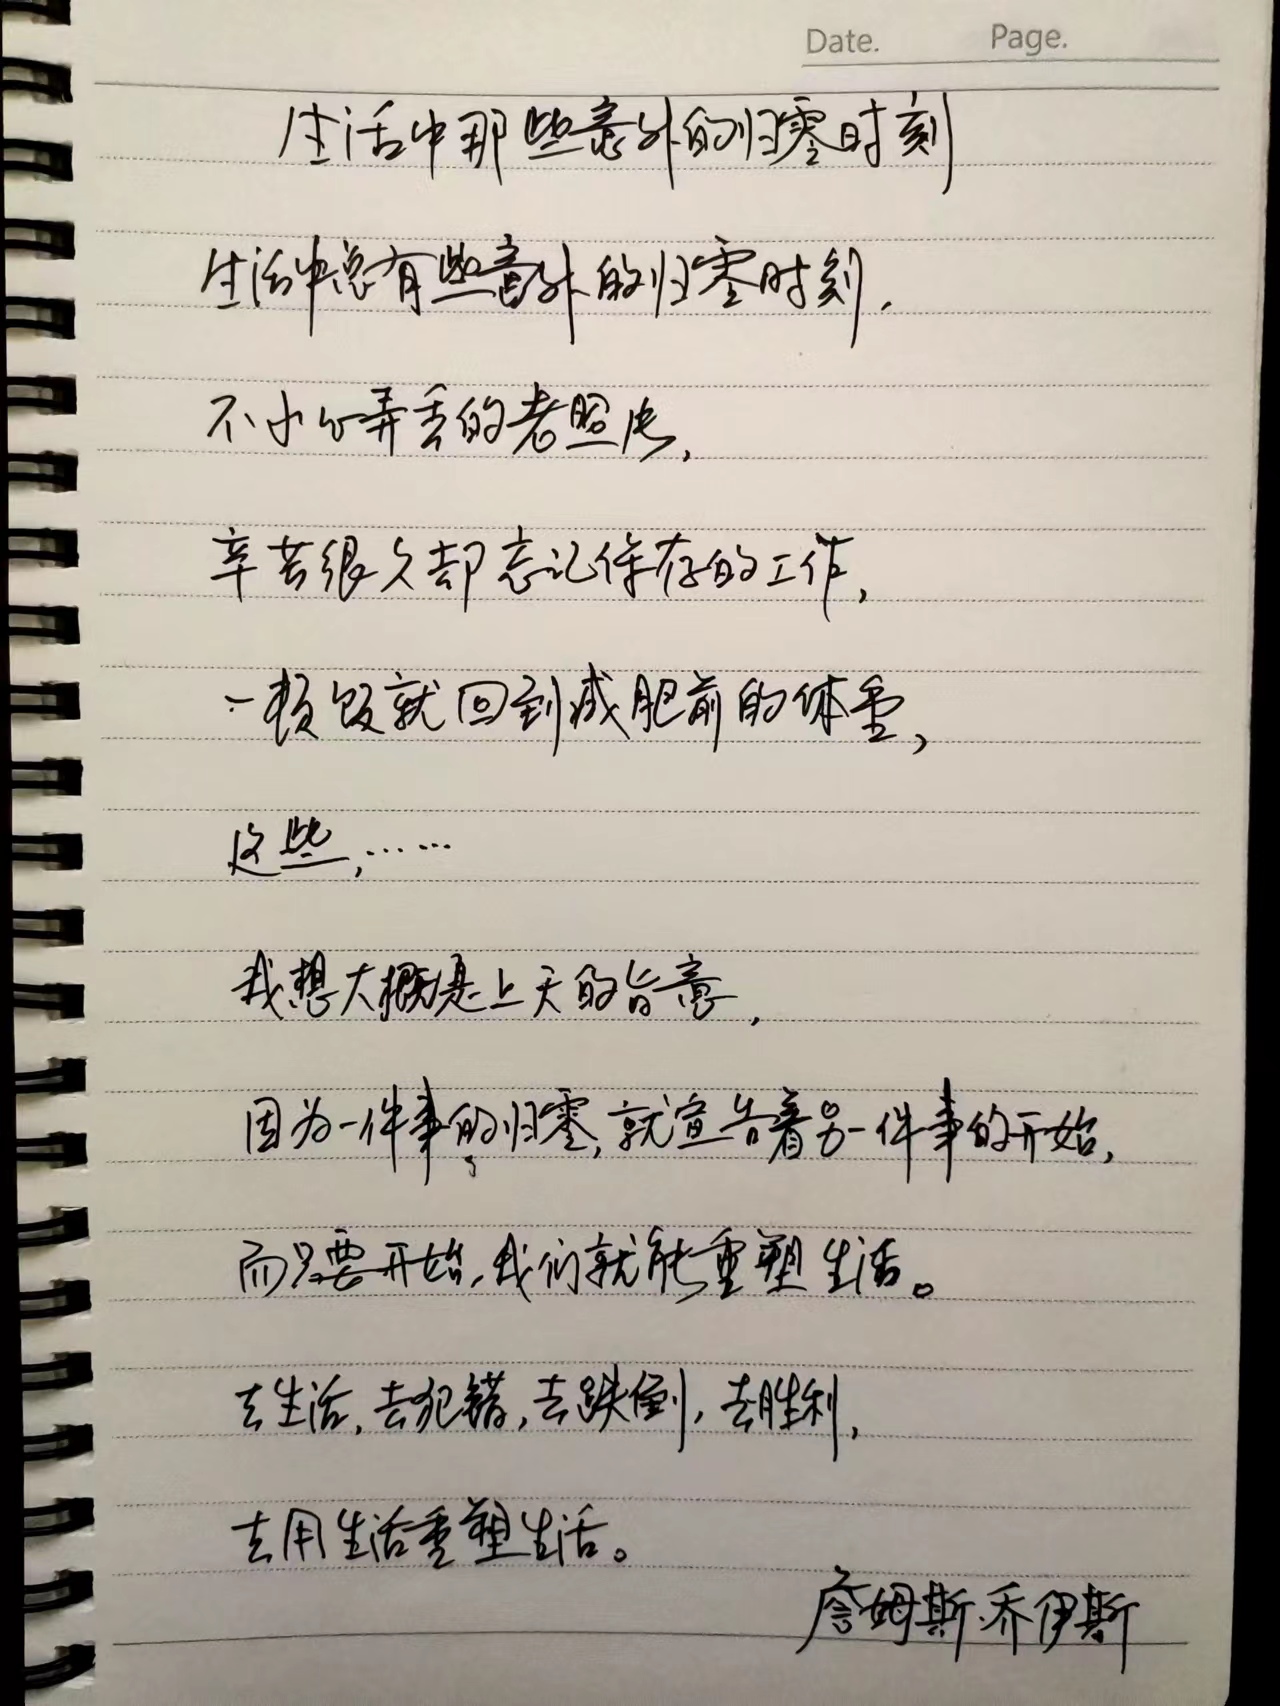 Date. Page.
生活中那些意外的归零时刻
生活中总有些意外的归零时刻,
不小心弄丢的老照片,
辛苦很久却忘记保存的工作,
一顿饭就回到减肥前的体重,
这些,……
我想大概是上天的旨意,
因为一件事的归零,就宣告着另一件事的开始,
而只要开始,我们就能重塑生活。
去生活,去犯错,去跌倒,去胜利,
去用生活重塑生活。
詹姆斯·乔伊斯